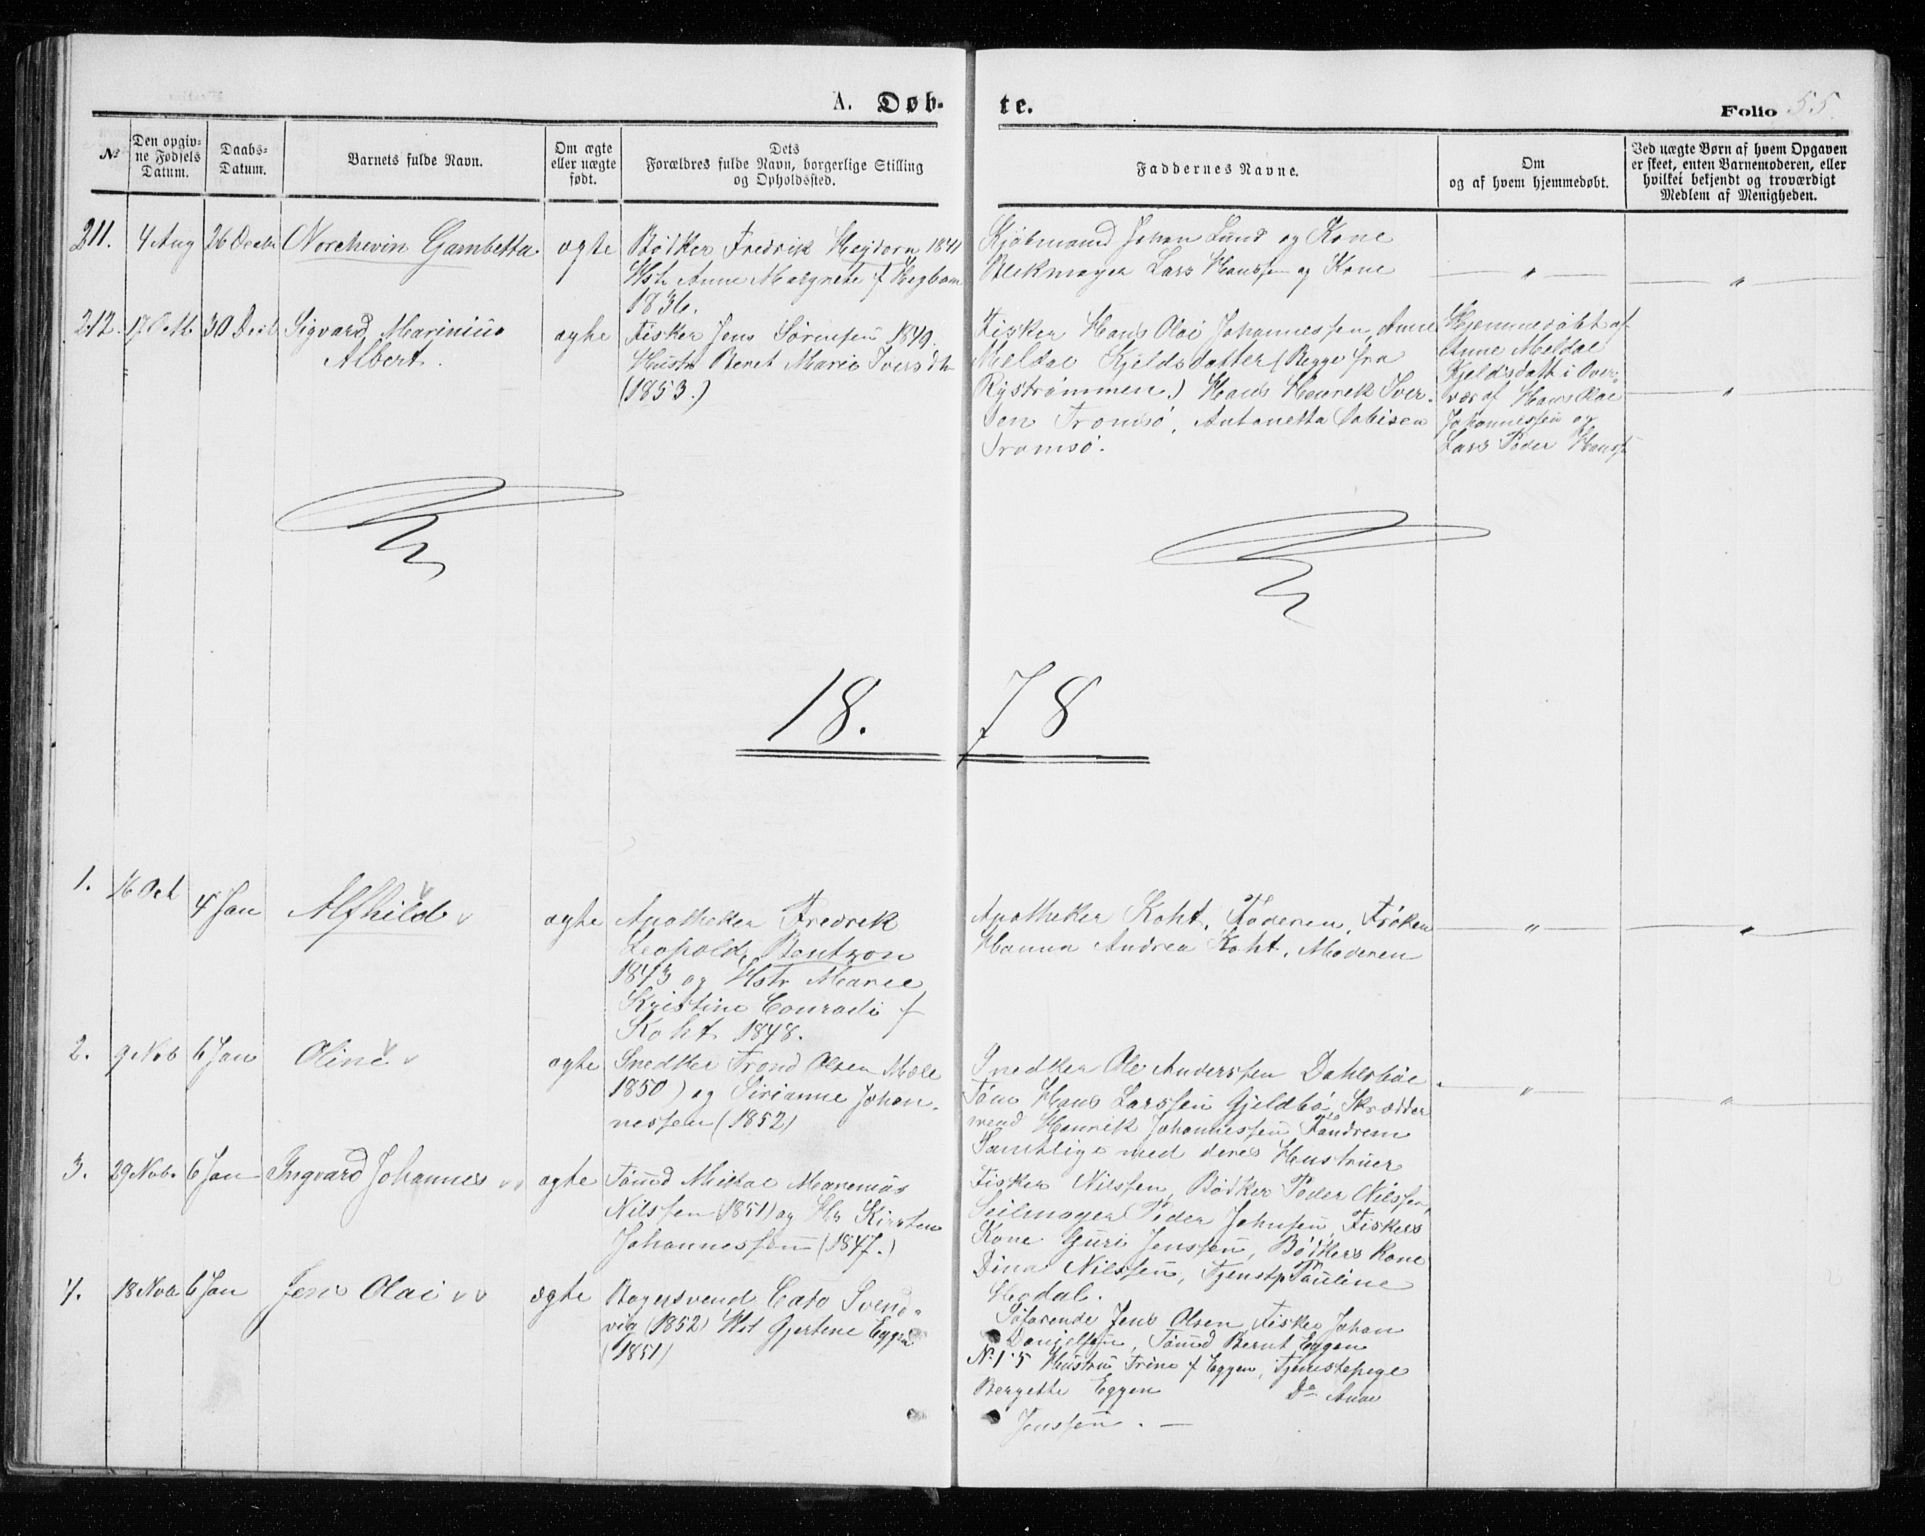 A. Døb-
te.
Folio 55.
№
Den opgiv-
ne Fødsels
Datum.
Daabs-
Datum.
Barnets fulde Navn.
Om ægte
eller uægte
født.
Dets
Forældres fulde Navn, borgerlige Stilling
og Opholdssted.
Faddernes Navne.
Om
og af hvem hjemmedøbt.
Ved uægte Børn af hvem Opgaven
er skeet, enten Barnemoderen, eller
hvilket bekjendt og troværdigt
Medlem af Menigheden.
211.
4 Aug
26 Decbr
Norchevin Gambetta
ægte
Bødker Fredrik Heydorn 1841
Hst. Anne Margrethe f Hegbom
1836.
Kjøbmand Johan Lund og Kone
Blikmager Lars Hanssen og Kone
"
"
212.
17 Octb
30 Decb
Sigvard Marinius
Albert.
ægte
Fisker Jens Sørensen 1849.
Hustr Beret Marie Iversdtr
(1853.)
Fisker Hans Olai Johannessen, Anne
Meldal Kjeldsdatter (Begge fra
Rystrømmen.) Hans Henrik Iver-
sen Tromsø, Antonetta Tobisen
Tromsø.
Hjemmedøbt af
Anne Meldal
Kjeldsdatt i Over-
vær af Hans Olai
Johannessen og
Lars Peder Hanss
"
18. 78
1.
16 Oct
4 Jan
Alfhild
ægte
Apotheker Fredrik
Leopold, Bentzon
1843 og Hstr Marie
Kristine Conradi f
Koht 1848.
Apotheker Koht, Faderen, Frøken
Hanna Andrea Koht, Moderen
"
"
2.
9 Nob
6 Jan
Oline
ægte
Snedker Trond Olsen Mæle
1850) og Sirianne Johan-
nessen (1852)
Snedker Ole Anderssen Dahlsbøe
Tøm Hans Larssen Gjeldbø, Skrædder
svend Henrik Johannessen Tandrem
Samtlige med deres Hustruer
"
"
3.
29 Nob.
6 Jan
Ingvard Johannes
ægte
Tømd Mikal Marenius
Nilssen (1851) og Hs Kirsten
Johannessen (1847.)
Fisker Nilssen, Bødker Peder Nilssen,
Seilmager Peder Johnsen, Fiskers
Kone Guri Jenssen, Bødkers Kone
Dina Nilssen, Tjenstp Pauline
Hegdal.
4.
18 Nob
6 Jan
Jens Olai
ægte
Bagersvend Cato Svends-
vig (1852) Hst Gjertine Eggen
(1851)
Søfarende Jens Olsen, Fisker Johan
Danielsen, Tømd Bernt Eggen
N. 15 Hustru Trine f Eggen, Tjenestepige
Bergette Eggen Do Anne
Jenssen.